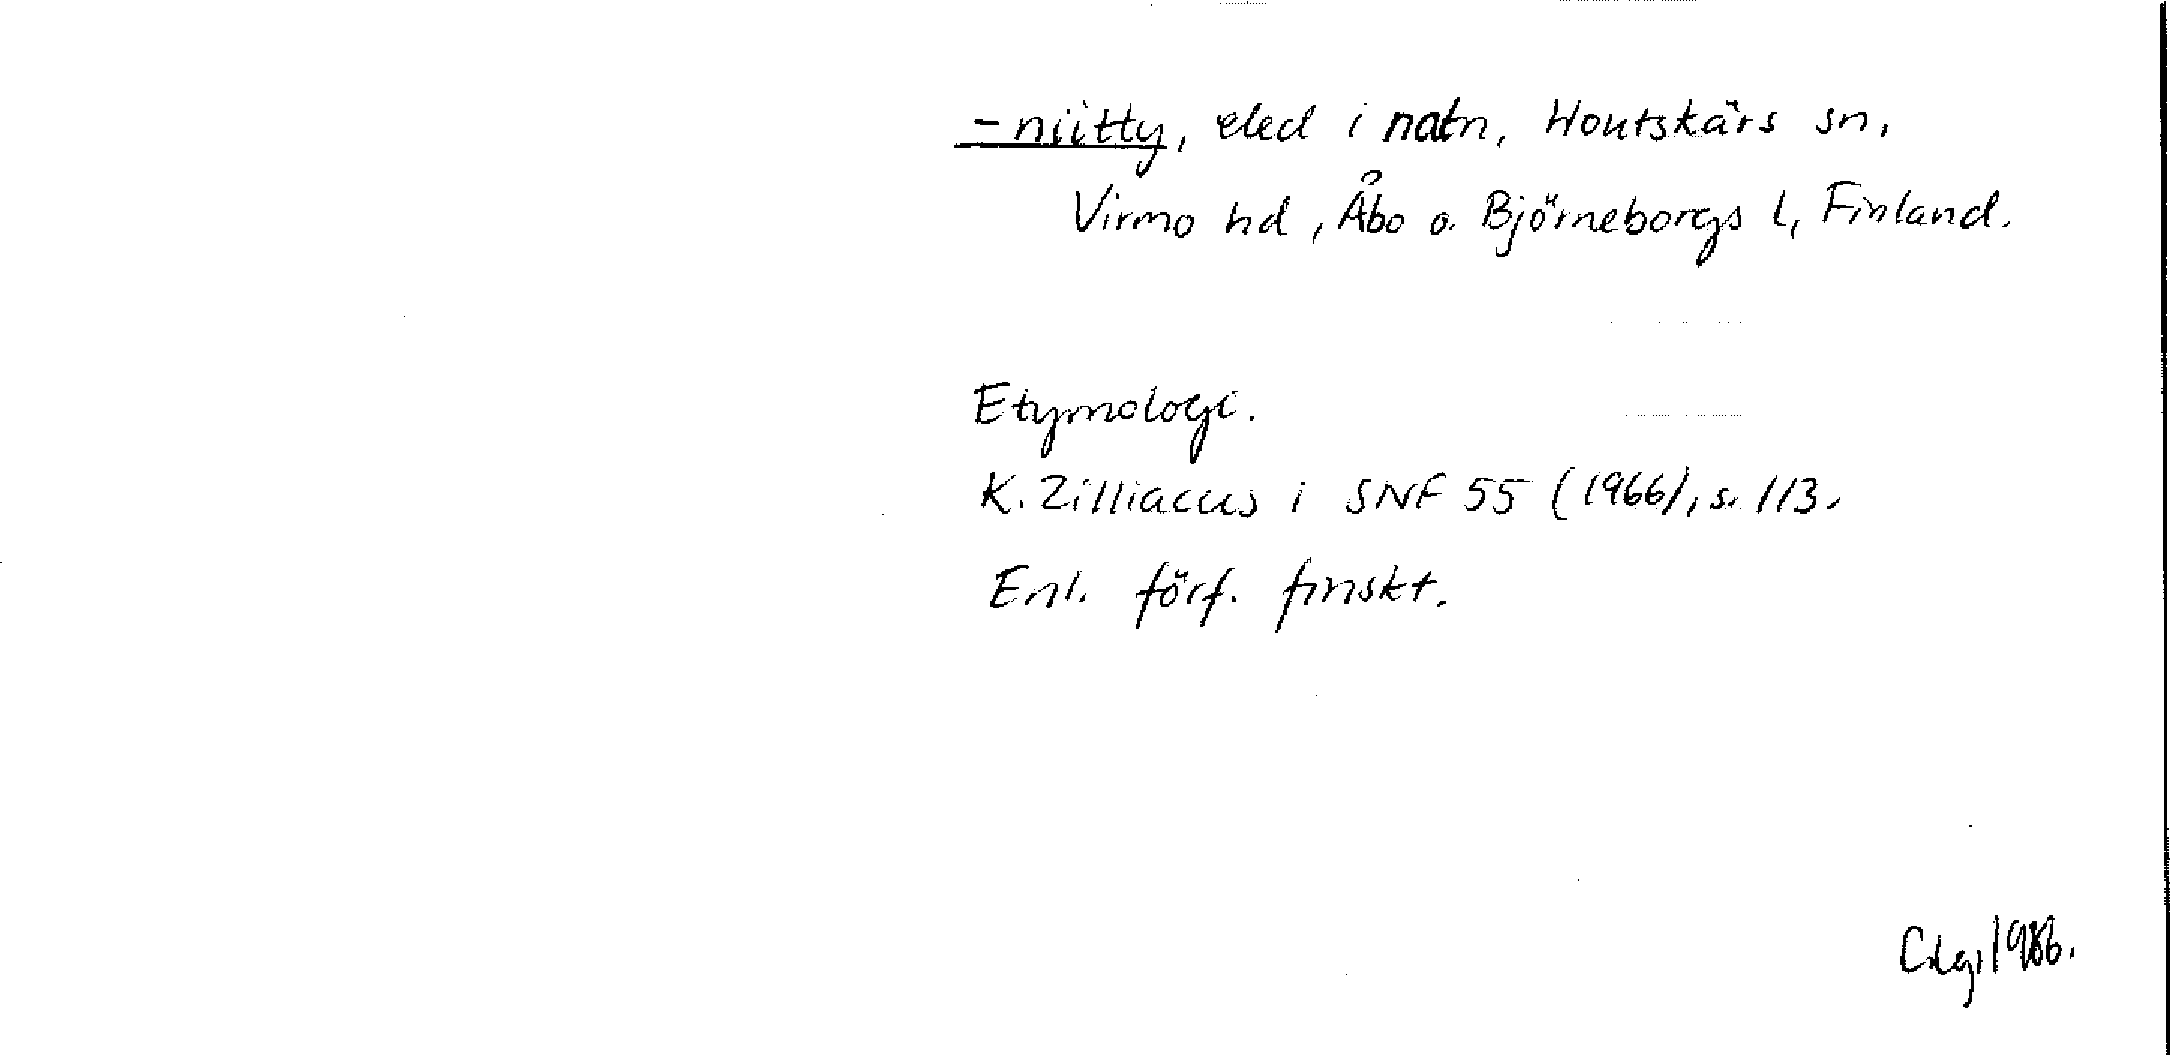 -niitty, eled i natn, Houtskärs sn,
Virmo hd, Åbo o. Björneborgs l, Finland.
Etymologi.
K. Zilliacus i SNF 55 (1966), s. 113.
Enl. förf. finskt.
1986.